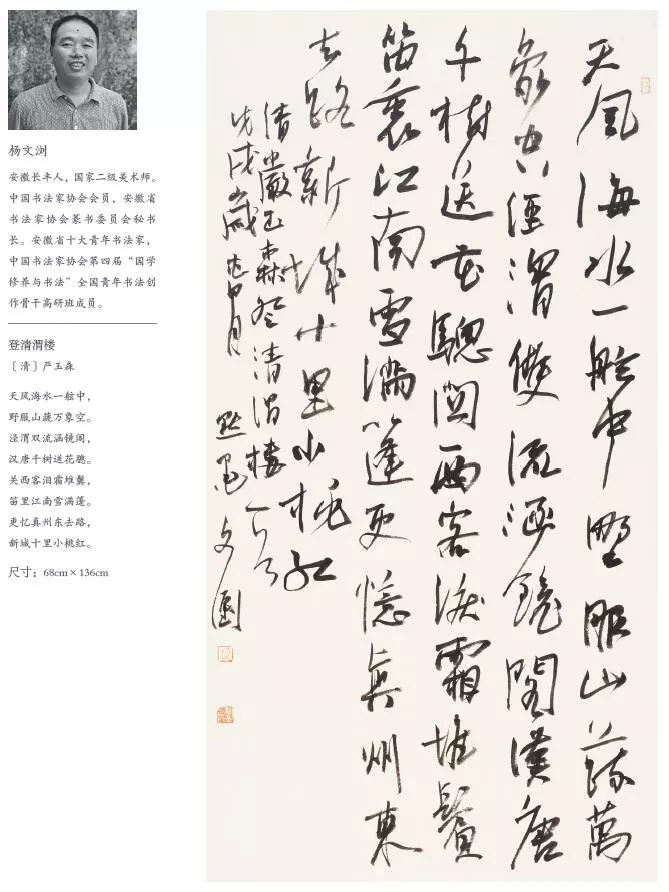 杨文浏
安徽长丰人，国家二级美术师。
中国书法家协会会员，安徽省
书法家协会篆书委员会秘书
长。安徽省十大青年书法家，
中国书法家协会第四届“国学
修养与书法”全国青年书法创
作骨干高研班成员。
登清渭楼
［清］严玉森
天风海水一舷中，
野服山蔬万象空。
泾渭双流涵镜阁，
汉唐千树送花骢。
关西客泪霜堆鬓，
笛里江南雪满篷。
更忆真州东去路，
新城十里小桃红。
尺寸：68cm×136cm
天風海水一舷中野服山蔬萬
象空涇渭雙流涵鏡閣漢唐
千樹送花驄關西客淚霜堆鬢
笛裏江南雪滿篷更憶真州東
去路新城十里小桃紅
清嚴玉森登清渭樓一首
戊戌歲
文